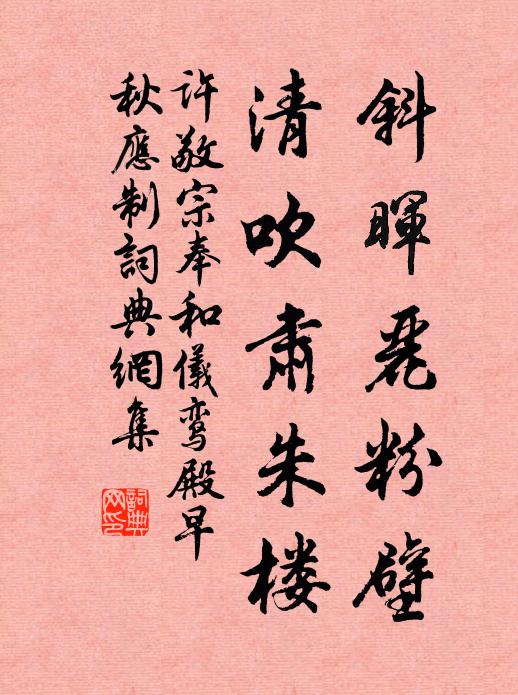 斜暉麗粉壁
清吹肅朱楼
许敬宗奉和儀鸾殿早
秋應制詞典網集
詞典网印